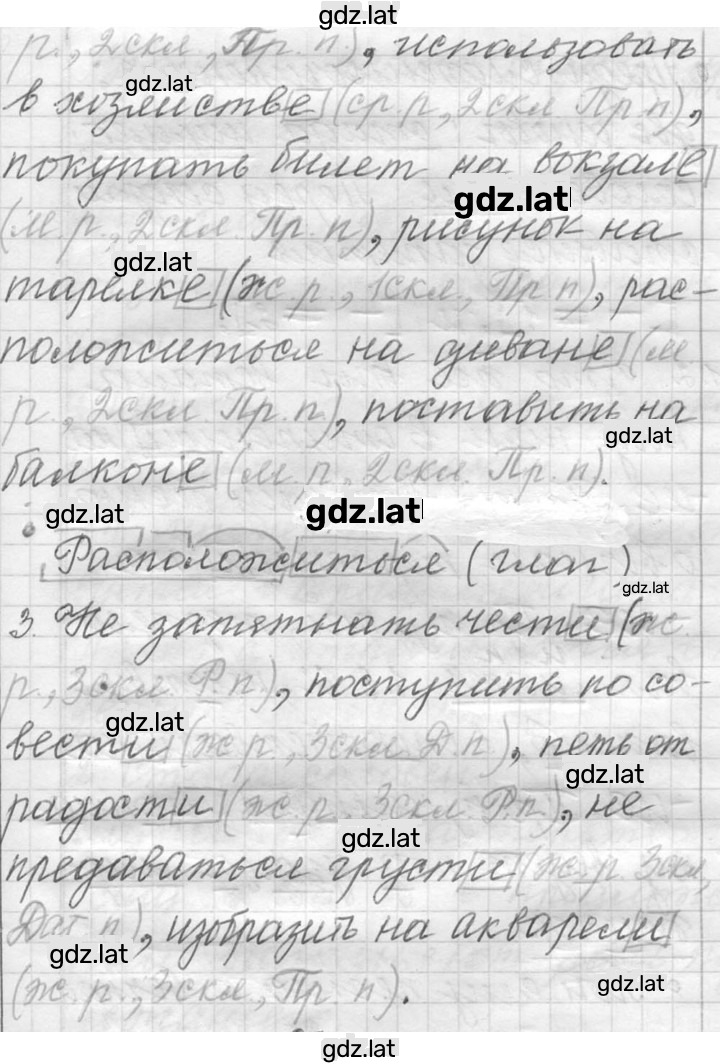 gdz.lat
р., 2скл., Пр. п.), использовать
gdz.lat
в хозяйстве (ср. р., 2скл. Пр. п),
покупать билет на вокзале
gdz.lat
(м. р., 2скл. Пр. п), рисунок на
gdz.lat
тарелке (ж. р., 1скл., Пр. п), рас-
положиться на диване (м.
р., 2скл. Пр. п), поставить на
gdz.lat
балконе (м. р., 2скл. Пр. п).
gdz.lat gdz.lat
Расположиться (глаг)
gdz.lat
3. Не запятнать чести (ж.
р., 3скл. Р. п.), поступить по со-
gdz.lat
вести (ж. р., 3скл. Д. п.), петь от
gdz.lat
радости (ж. р. 3скл. Р. п.), не
gdz.lat
предаваться грусти (ж. р. 3скл,
Дат. п), изобразить на акварели
gdz.lat
(ж. р., 3скл., Пр. п).
gdz.lat
gdz.lat